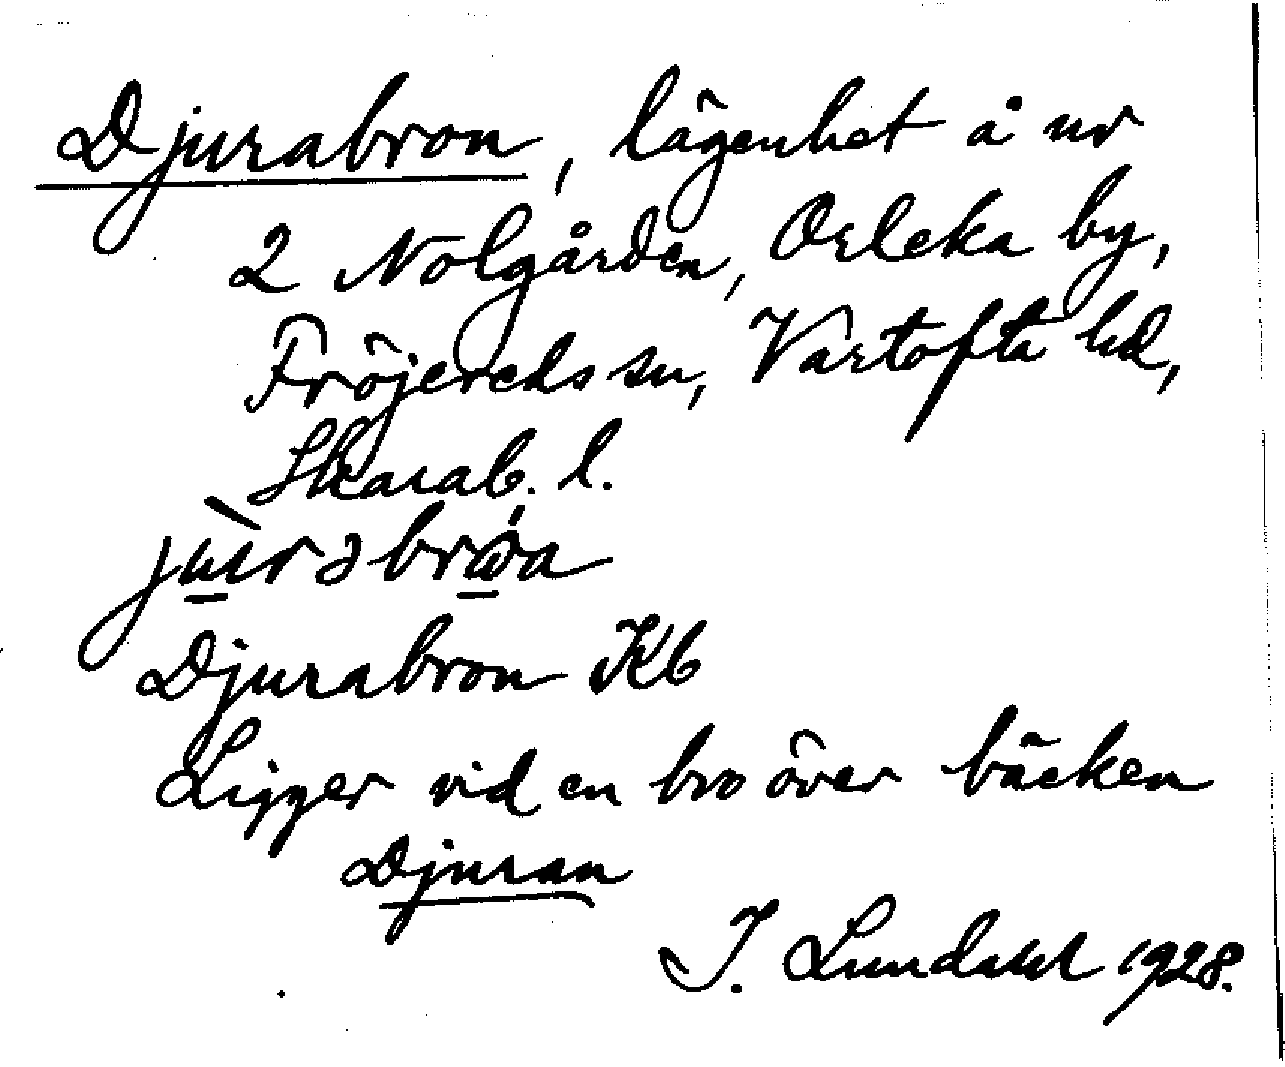 Djurabron, lägenhet å nr
2 Nolgården, Orleka by,
Fröjereds sn, Vartofta hd,
Skarab. l.
Djurabron Kb
Ligger vid en bro över bäcken
Djuran
I. Lundahl 1928.